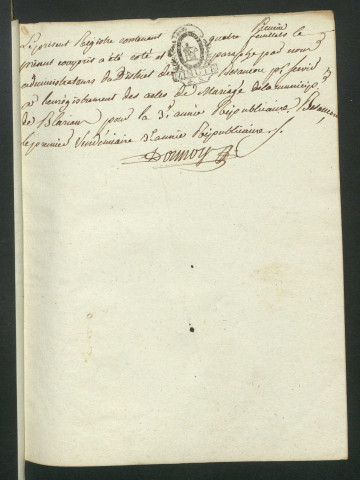 Premier
Le present Registre contenant quatre feuillets le
présent compris a été coté et paraphé par nous
administrateurs du District de Besancon pr servir
a l'enregistrement des actes de Mariage de la municip.
de Blarians pour la 3e année Républicaine, Besancon
le premier Vendémiaire 3e année Républicaine.